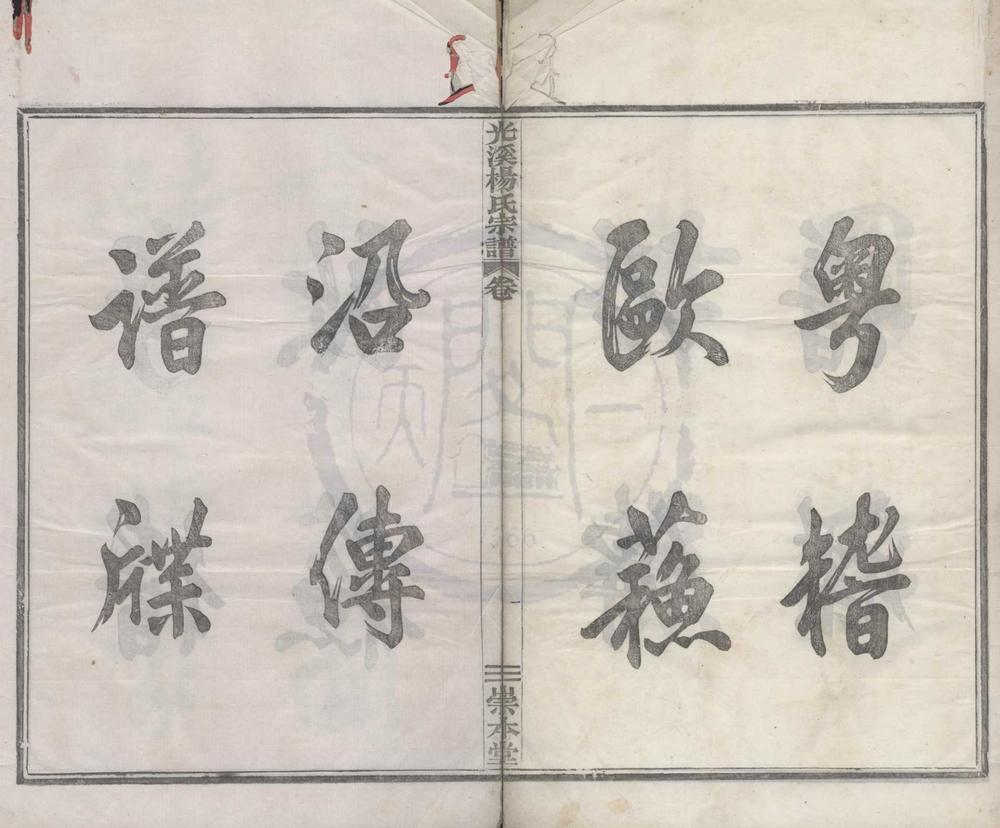 粵稽
歐蘇
光溪楊氏宗譜
卷
一
崇本堂
沿傳
譜牒